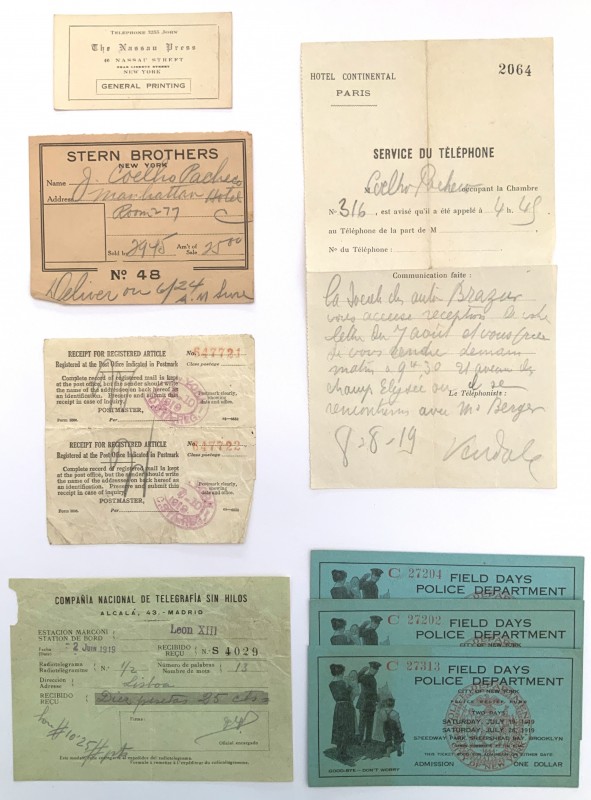 TELEPHONE 2255 JOHN
The Nassau Press
40 NASSAU STREET
NEAR LIBERTY STREET
NEW YORK
GENERAL PRINTING
STERN BROTHERS
NEW YORK
Name J. Coelho Pacheco
Address Manhattan Hotel
Room 277
Sold by 2945 Am't of Sale 25.00
No 48
Deliver on 6/24 A.M Sure
RECEIPT FOR REGISTERED ARTICLE No. 647721
Registered at the Post Office Indicated in Postmark
Complete record of registered mail is kept
at the post office, but the sender should write
the name of the addressee on back hereof as
an identification. Preserve and submit this
receipt in case of inquiry.
POSTMASTER,
Per
Class postage
Postmark clearly,
showing
date and office.
RECEIPT FOR REGISTERED ARTICLE No. 647722
Registered at the Post Office Indicated in Postmark
Complete record of registered mail is kept
at the post office, but the sender should write
the name of the addressee on back hereof as
an identification. Preserve and submit this
receipt in case of inquiry.
POSTMASTER,
Per
Class postage
Postmark clearly,
showing
date and office.
COMPAÑIA NACIONAL DE TELEGRAFÍA SIN HILOS
ALCALÁ, 43.-MADRID
ESTACION MARCONI
STATION DE BORD
Leon XIII
Fecha
2 Jun 1919
RECIBIDO
REÇU
N.º S 4029
Radiotelegrama
Radiotélégramme
N.º 1/2
Número de palabras
Nombre de mots
13
Direccion
Adresse
Lisboa
RECIBIDO
REÇU
Diez pesetas 25 cts
Firma:
Oficial encargado
HOTEL CONTINENTAL
PARIS
2064
SERVICE DU TÉLÉPHONE
M Coelho Pacheco occupant la Chambre
No 316, est avisé qu'il a été appelé à 4 h. 45
au Téléphone de la part de M
No du Téléphone :
Communication faite :
La Société des autos Brazier
vous accuse reception de votre
lettre du 7 août et vous prie
de vous rendre demain
matin à 9h 30 21 avenue des
champs Elysée ou
rencontrerez avec Mr Berger
Le Téléphoniste :
8-8-19
C 27204
FIELD DAYS
POLICE DEPARTMENT
C 27202
FIELD DAYS
POLICE DEPARTMENT
CITY OF NEW YORK
C 27313
FIELD DAYS
POLICE DEPARTMENT
CITY OF NEW YORK
TWO DAYS
SATURDAY, JULY 19, 1919
SATURDAY, JULY 26, 1919
SPEEDWAY PARK, SHEEPSHEAD BAY, BROOKLYN
ADMISSION ONE DOLLAR
GOOD-BYE - DON'T WORRY